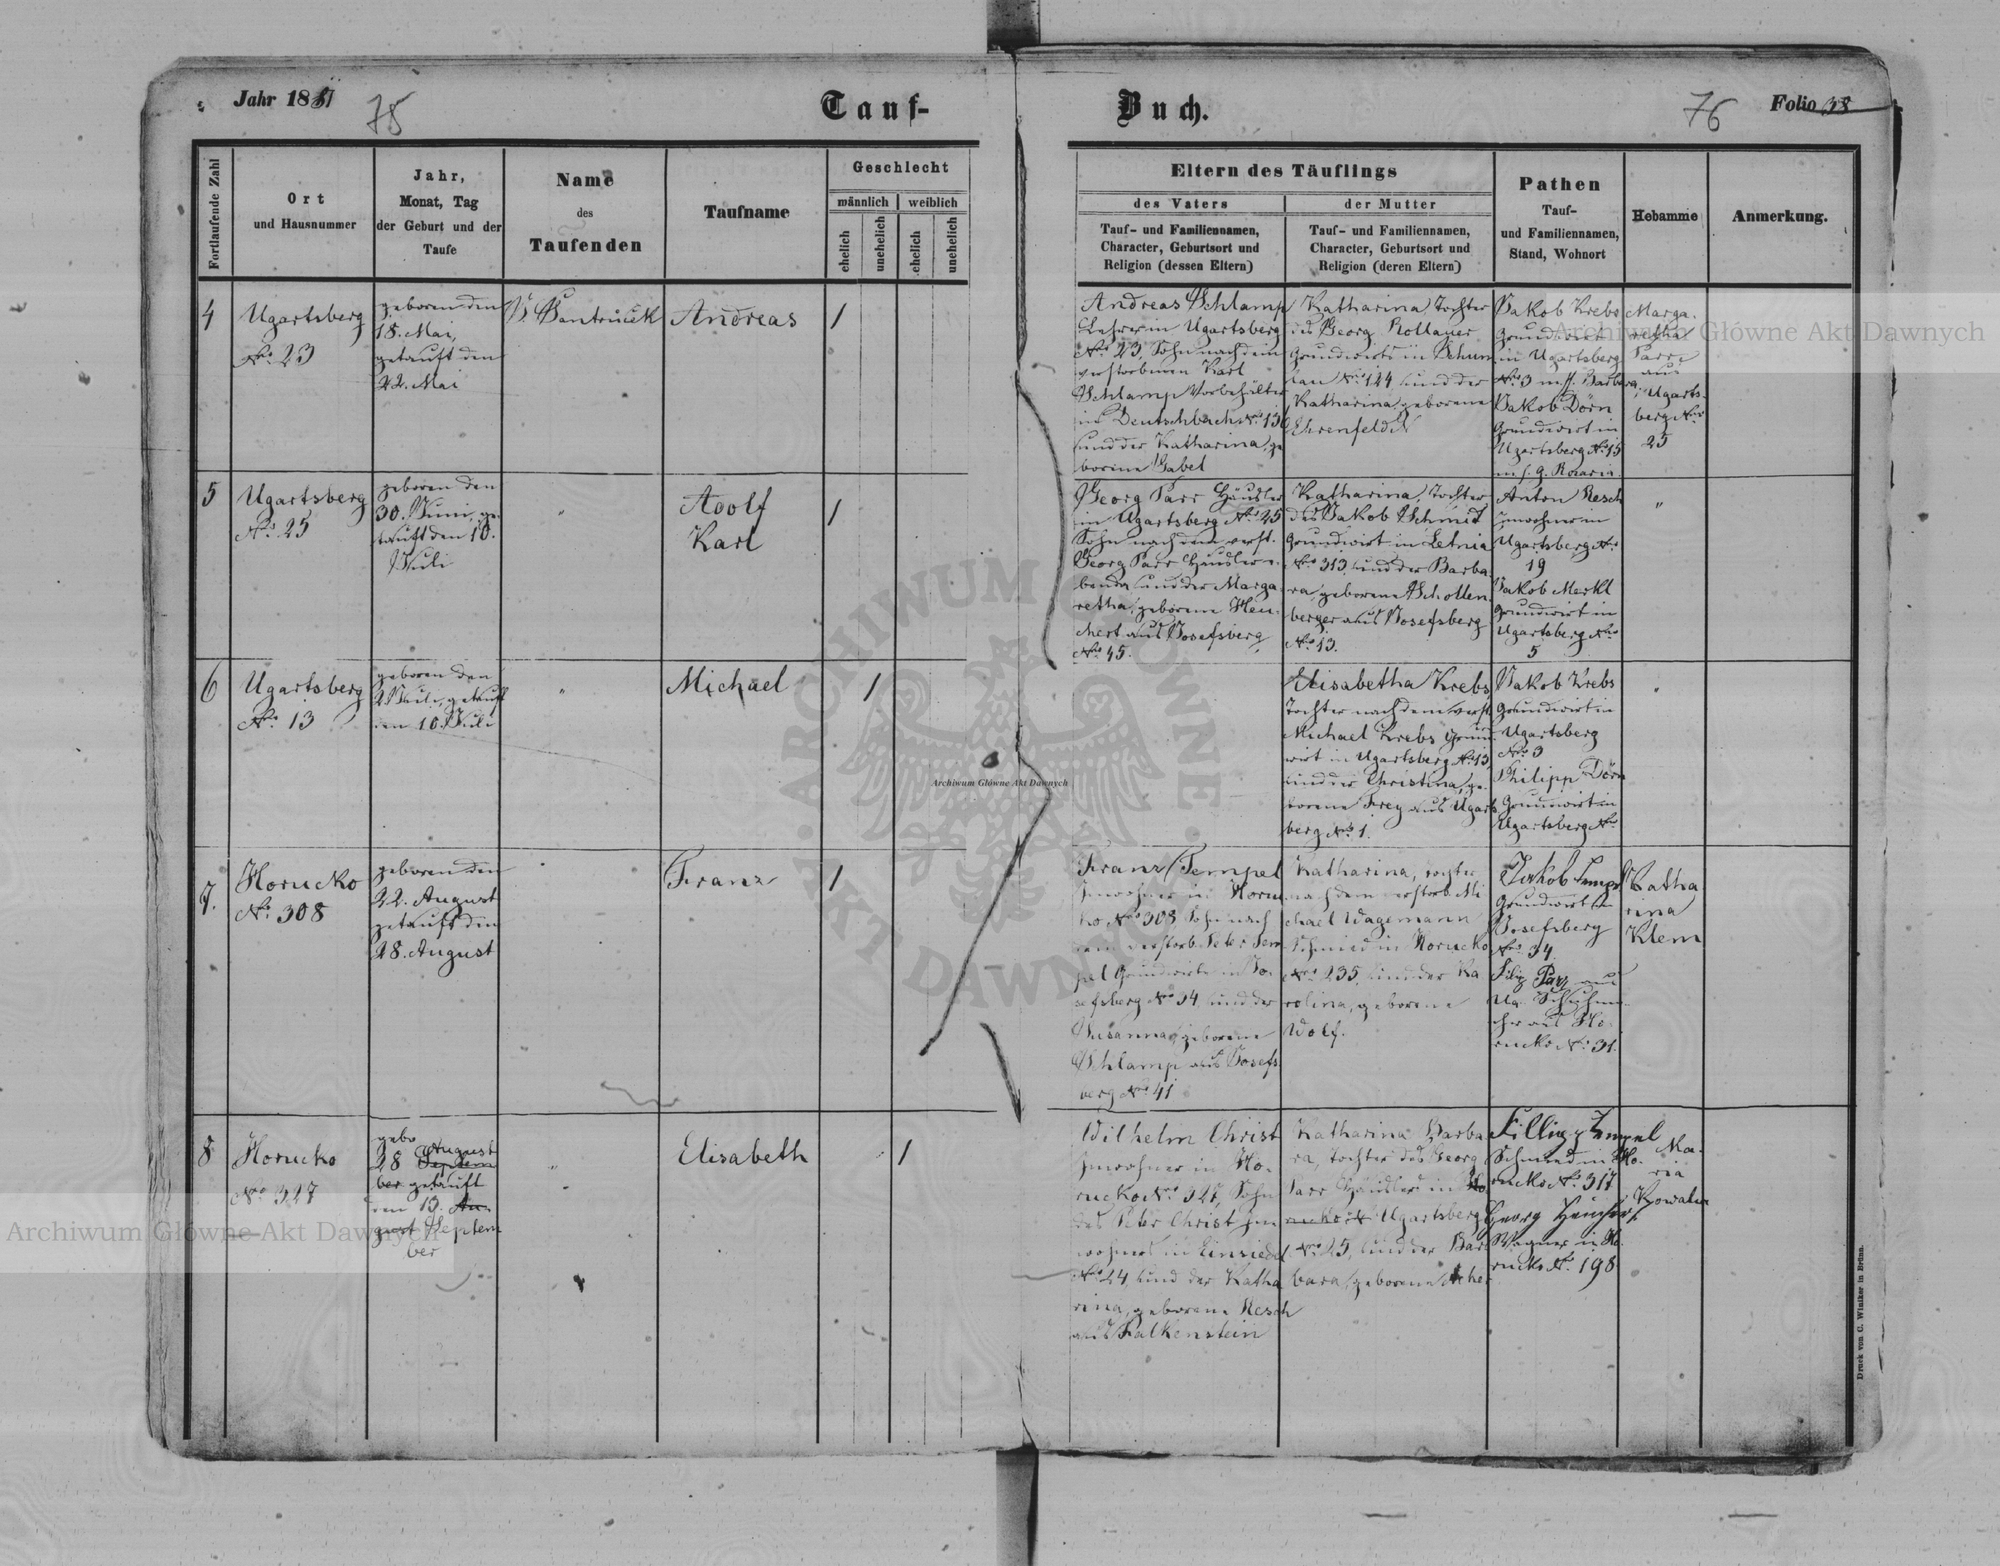 Jahr 1881
75
Tauf-
Buch.
76
Folio 38
Fortlaufende Zahl
Ort
und Hausnummer
Jahr,
Monat, Tag
der Geburt und der
Taufe
Name
des
Taufenden
Taufname
Geschlecht
männlich
weiblich
ehelich
unehelich
ehelich
unehelich
Eltern des Täuflings
des Vaters
Tauf- und Familiennamen,
Character, Geburtsort und
Religion (dessen Eltern)
der Mutter
Tauf- und Familiennamen,
Character, Geburtsort und
Religion (deren Eltern)
Pathen
Tauf-
und Familiennamen,
Stand, Wohnort
Hebamme
Anmerkung.
4
Ugartsberg
No. 23
geboren den
18. Mai,
getauft den
22. Mai
Andreas
1
Andreas Schlamp
Lehrer in Ugartsberg
No. 23, Sohn nach dem
verstorbenen Karl
Schlamp Vorbehälter
in Deutschbach No. 13
und der Katharina, ge
borene Gabel
Katharina, Tochter
des Georg Kollauer
Grundwirts in Schum
lau No. 124 und der
Katharina, geborene
Ehrenfeld
Jakob Krebs
Grundwirt
in Ugartsberg
No. 3 m. f. Barbara,
Jakob Dörn
Grundwirt in
Ugartsberg No. 15
Marga-
retha
Parr
aus
Ugarts-
berg No.
25
5
Ugartsberg
No. 25
geboren den
30. Juni, ge-
tauft den 10.
Juli
"
Adolf
Karl
1
Georg Parr Häusler
in Ugartsberg No. 25
Sohn nach dem verst.
Georg Parr Häusler
und der Marga
retha, geborene Heu-
chert aus Josefsberg
No. 45.
Katharina, Tochter
des Jakob Schmit
Grundwirt in Letnia
No. 313 und der Barba-
ra, geborene Schollen-
berger aus Josefsberg
No. 13.
Anton Resch
Inwohner in
Ugartsberg No.
19
Jakob Merkl
Grundwirt in
Ugartsberg No.
5
"
6
Ugartsberg
No. 13
geboren den
2 Juli, getauft
den 10. Juli
"
Michael
1
Elisabetha Krebs
Tochter nach dem verst.
Michael Krebs Grund-
wirt in Ugartsberg No. 13,
und der Christina, ge-
borene Frey aus Ugarts
berg No. 1.
Jakob Krebs
Grundwirt in
Ugartsberg
No. 3
Philipp Dörn
Grundwirt in
Ugartsberg No.
"
7.
Horucko
No. 308
geboren den
22. August
getauft den
28. August
Franz
1
Franz Tempel
Inwohner in Horuc
ko No. 308 Sohn nach
dem verstorb. Peter Tem
pel Grundwirt in Jo-
sefsberg No. 34, und der
Susanna, geborene
Schlamp aus Josefs
berg No. 41
Katharina, Tochter
nach dem verstorb. Mi
chael Wagemann
Schmied in Horucko
No. 235, und der Ka
rolina, geborene
Wolf.
Jakob Tempel
Grundwirt in
Josefsberg
No. 34
Filip Parr
aus Ho-
rucko No. 31.
Katha
rina
Klem
8
Horucko
No. 327
gebo
28 August
Septem
ber getauft
den 13. Au-
gust Septem
ber
"
Elisabeth
1
Wilhelm Christ
Inwohner in Ho-
rucko No. 327, Sohn
des Peter Christ In
wohners in Einsiedel
No. 24, und der Katha
rina, geborene Resch
aus Falkenstein
Katharina Barba
ra, Tochter des Georg
Parr Häuslers in Ho
rucko Ugartsberg
No. 25, und der Bar
bara, geborene
Fillipp Tempel
Schmied in Ho-
rucko No. 317
Georg
Wagner in Ho-
rucko No. 198
Ma-
ria
Kowalu
Druck von C. Winiker in Brünn.
Archiwum Główne Akt Dawnych
Archiwum Główne Akt Dawnych
Archiwum Główne Akt Dawnych
ARCHIWUM GŁÓWNE AKT DAWNYCH